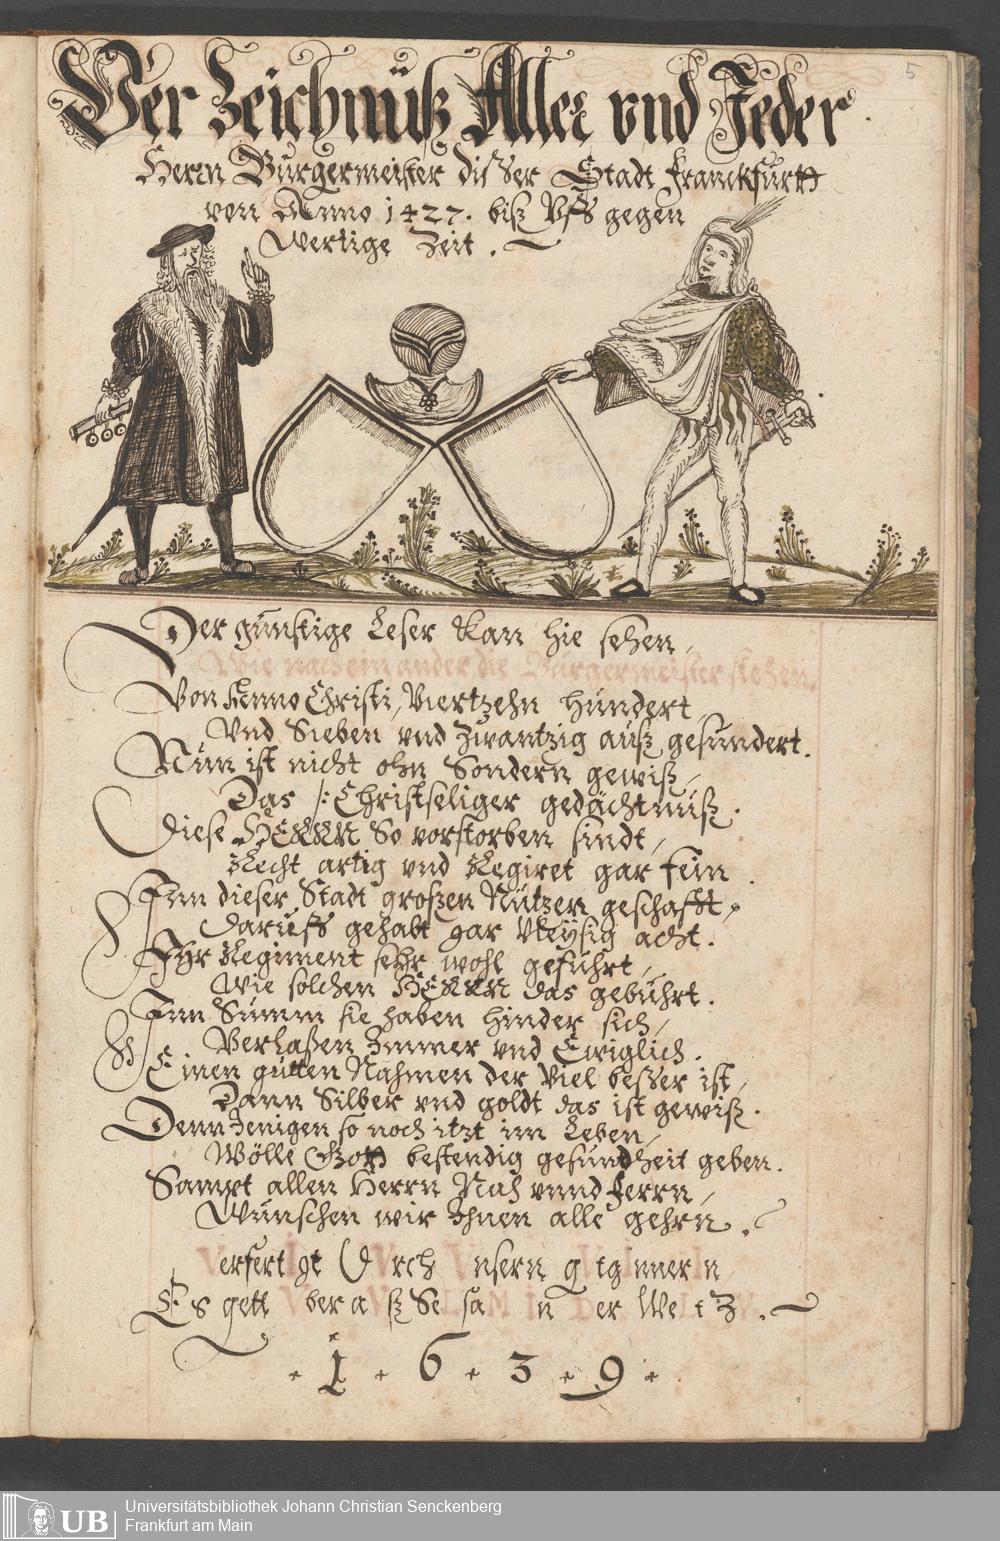 5
Ver Zeichnüß Aller vnd Jeder
Herrn Bürgermeister disser Stadt Franckfurth
von Anno 1427. biß Vffs gegen
wertige Zeit.
Der günstige Leser kan hie sehen,
Wie nach ein ander die Bürgermeister stehen,
Von Anno Christi, Viertzehn hündert,
Vnd Sieben vnd Zwantzig auß gesundert.
Nün ist nicht ohn Sondern gewiß,
Das /: Christseliger gedächtnüß.
Diese HERRN So vorstorben sindt,
Recht artig vnd Regiret gar fein.
Inn dieser Stadt großen Nützen geschafft,
Darüff gehabt gar vleÿsig acht.
Ihr Regiment sehr wohl geführt,
Wie solchen HERRN das gebührt.
Inn Summ sie haben hinder sich,
Verlaßen Immer vnd Ewiglich.
Einen gutten Nahmen der Viel besser ist,
Dann Silber vnd goldt das ist gewiß.
Denn Jenigen so noch itzt im Leben,
Wölle Gott bestendig gesündheit geben.
Sampt allen Herrn Nah vnnd Ferrn,
Wünschen wir Ihnen alle gehrn.
Verfertigt Durch Vnsern
Es gett Vber
1639
UB
Universitätsbibliothek Johann Christian Senckenberg
Frankfurt am Main